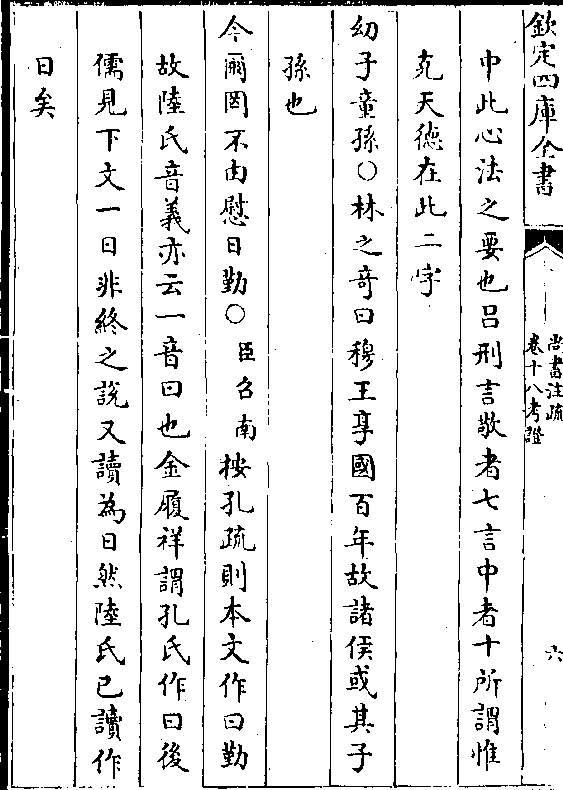 欽定四庫全書
尚書注疏
卷十八考證
六
中此心法之要也呂刑言敬者七言中者十所謂惟
克天德在此二字
幼子童孫○林之奇曰穆王享國百年故諸侯或其子
孫也
今爾罔不由慰日勤○臣召南按孔疏則本文作曰勤
故陸氏音義亦云一音曰也金履祥謂孔氏作曰後
儒見下文一日非終之說又讀為日然陸氏已讀作
日矣